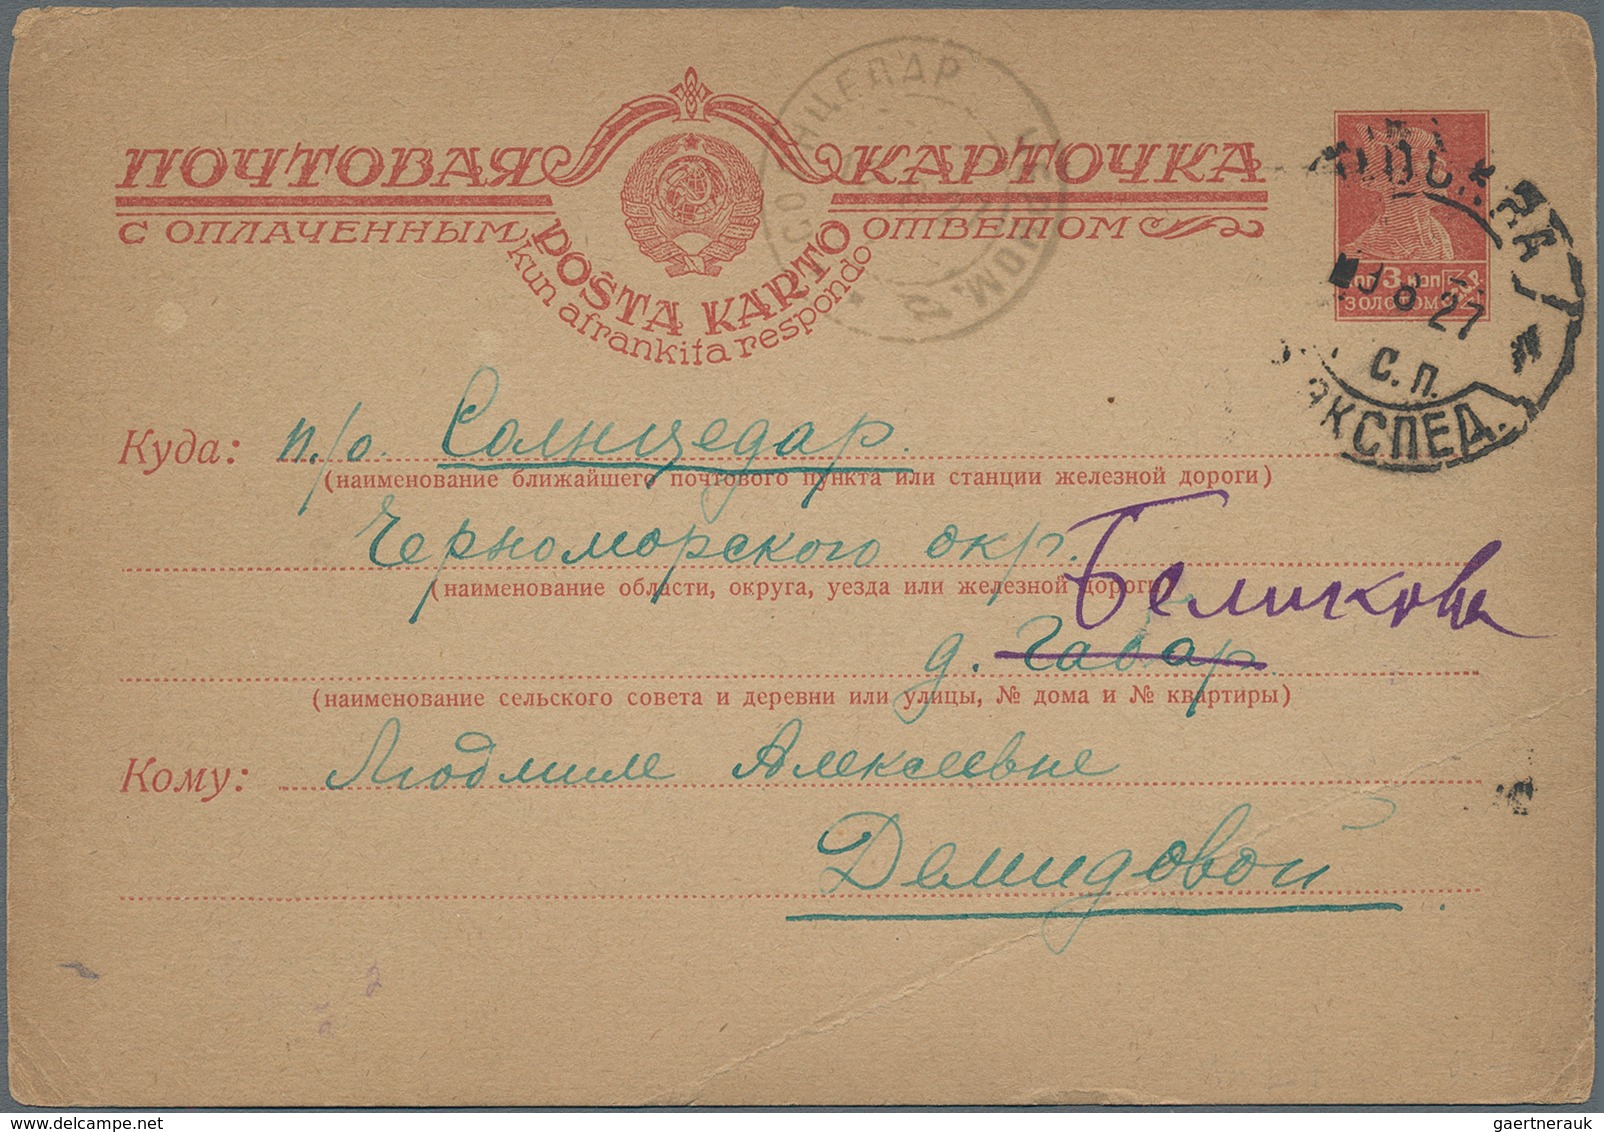 ПОЧТОВАЯ КАРТОЧКА
С ОПЛАЧЕННЫМ ОТВЕТОМ
POŜTA KARTO
kun afrankita respondo
3 КОП
ЗОЛОТОМ
МОСКВА
8 27
С.П.
ЭКСПЕД.
СОЛНЦЕДАР ЧЕРНОМ.
Куда: п/о. Солнцедар.
(наименование ближайшего почтового пункта или станции железной дороги)
Черноморского окр.
(наименование области, округа, уезда или железной дороги)
Беликова
д. Гавар
(наименование сельского совета и деревни или улицы, № дома и № квартиры)
Кому: Людмиле Алексеевне
Демидовой
gaertnerauk